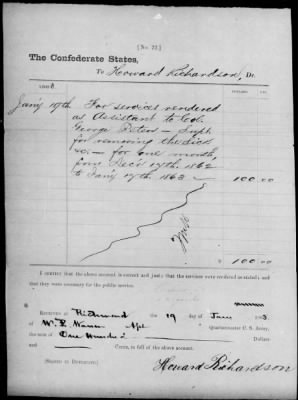 [No. 22.]
The Confederate States,
To Howard Richardson, Dr.
186
DOLLARS. CTS.
Jan'y 17th. For services rendered
as Assistant to Col.
George
for removing the sick
&c. — for one month,
from Dec'r 17th. 1862
to Jan'y 17th. 1863 — 100.00
$ 100.00
I CERTIFY that the above account is correct and just; that the services were rendered as stated; and
that they were necessary for the public service.
RECEIVED at Richmond the 19 day of 1863,
of W. Quartermaster C. S. Army,
the sum of One Hundred Dollars
and Cents, in full of the above account.
[SIGNED IN DUPLICATE.] Howard Richardson